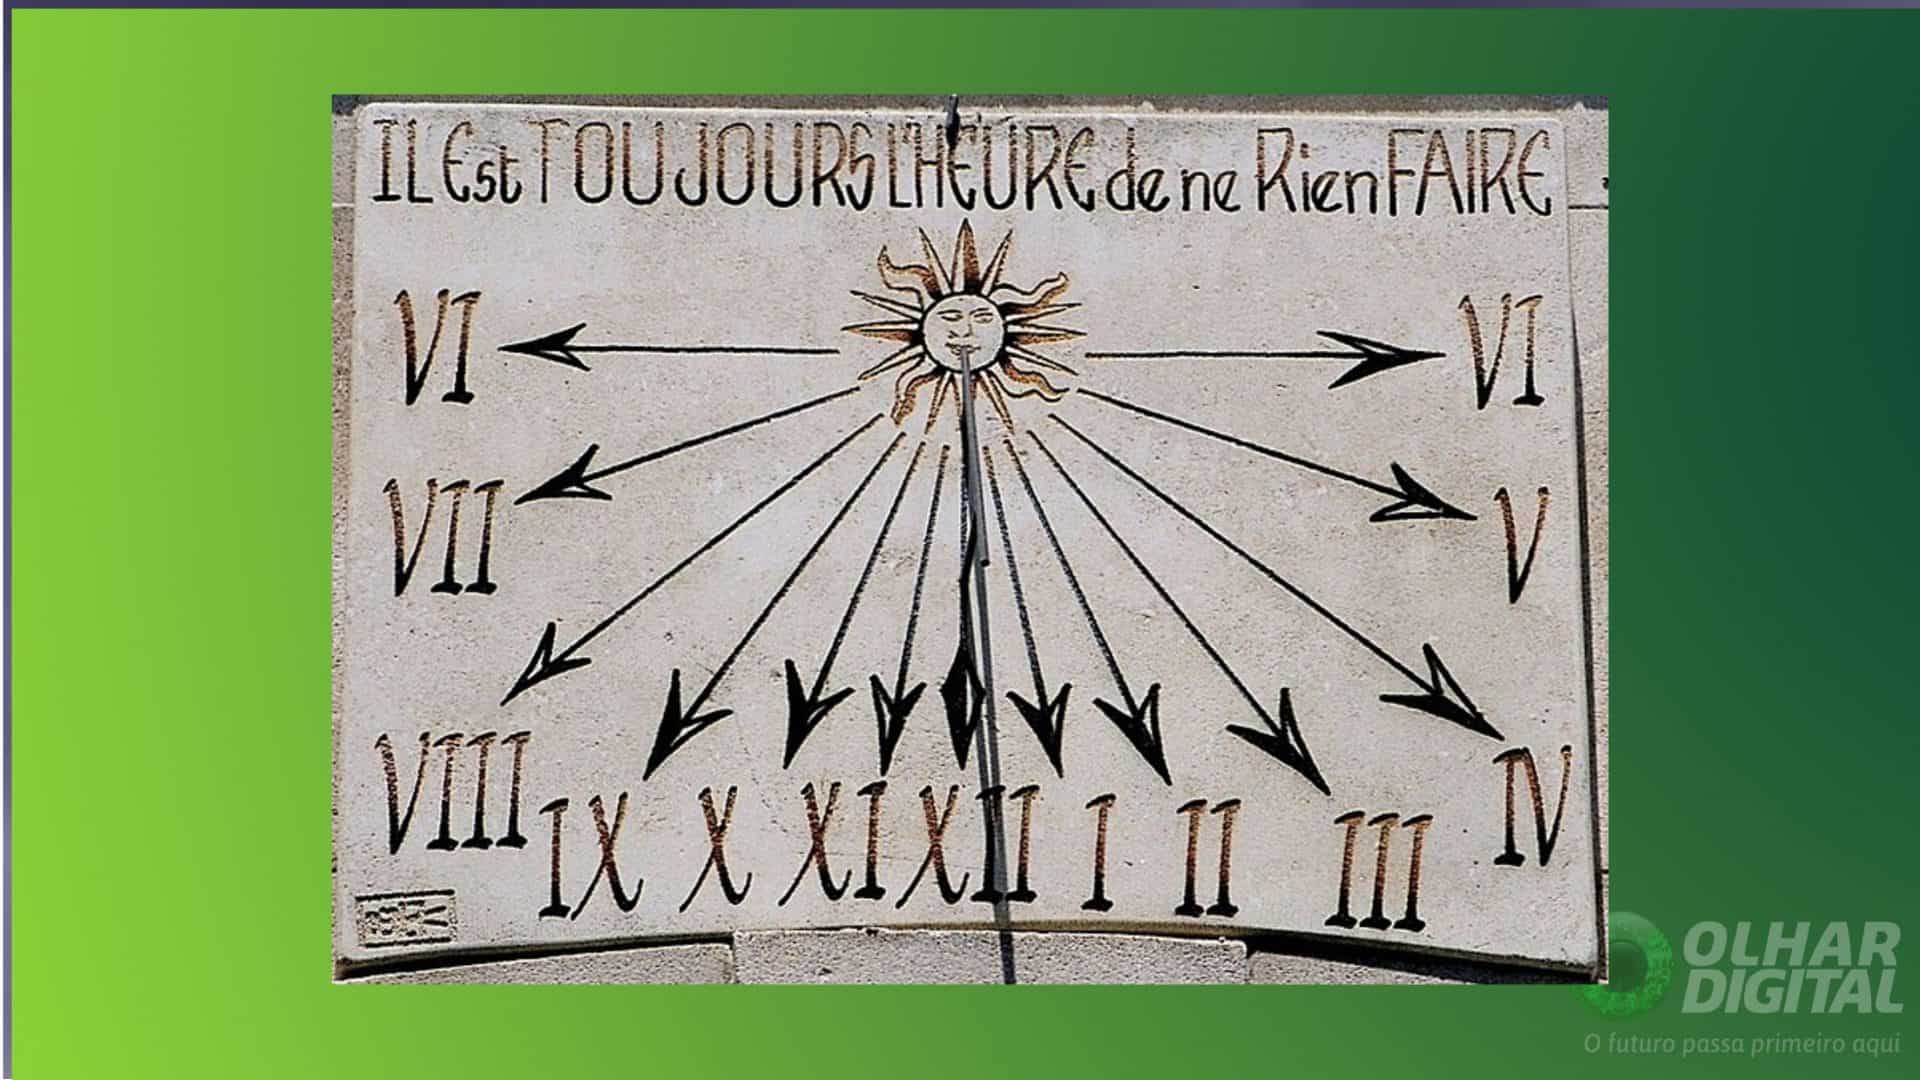 IL Est TOUJOURS L'HEURE de ne Rien FAIRE
VI VI
VII V
VIII IX X XI XII I II III IV
OLHAR
DIGITAL
O futuro passa primeiro aqui